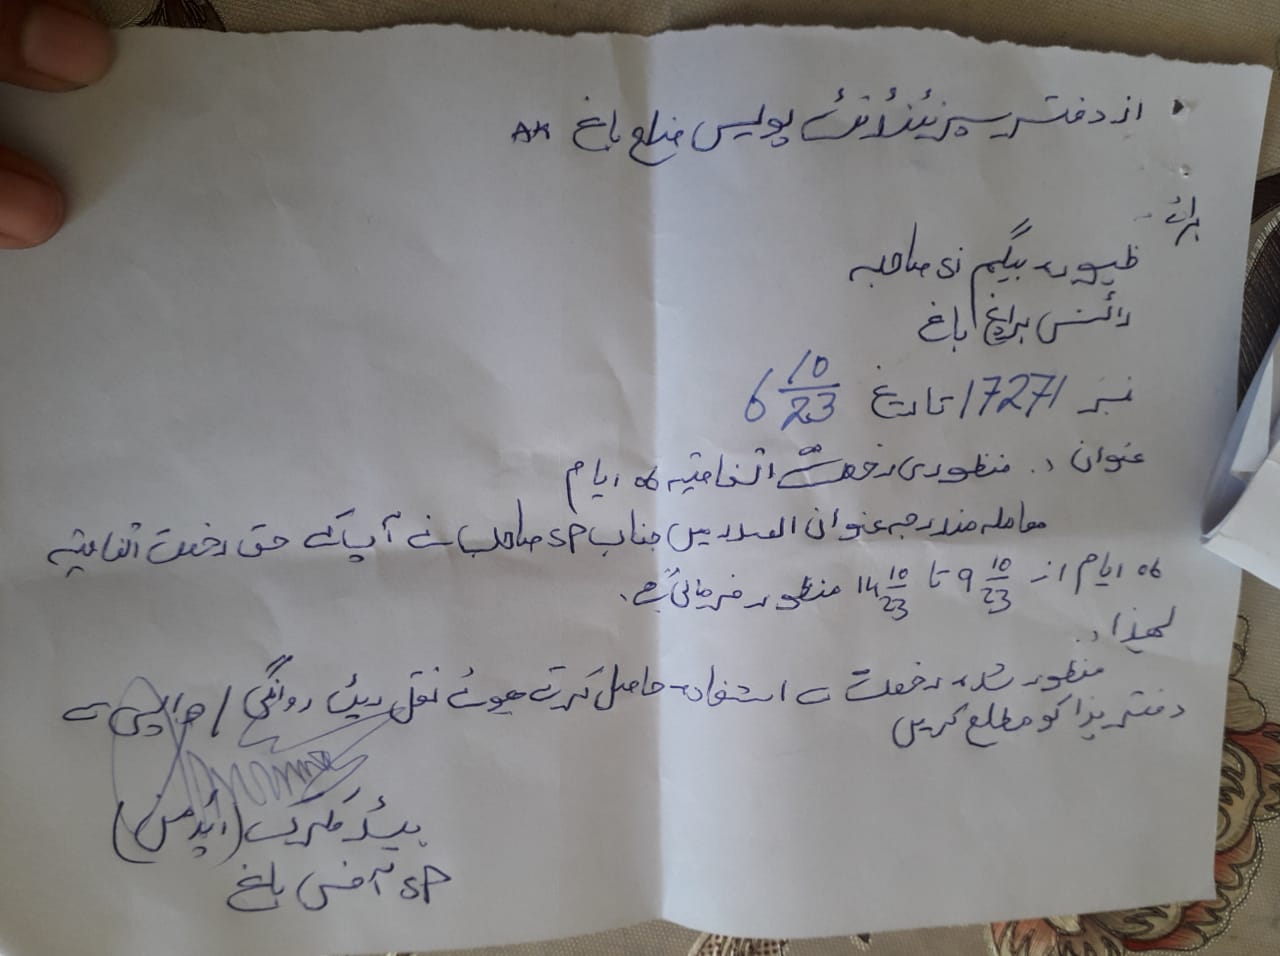 از دفتر سپرنٹنڈنٹ پولیس ضلع باغ AK
برائے
بیگم صاحبہ
باغ
نمبر 17271 تاریخ 6 10/23
عنوان :. منظوری رخصت اتفاقیہ 06 ایام
معاملہ مندرجہ عنوان الصدر میں جناب SP صاحب نے آپ کے حق رخصت اتفاقیہ
06 ایام از 9 10/23 تا 14 10/23 منظور فرمائی ہے.
لھذا :.
منظور شدہ رخصت سے استفادہ حاصل کرتے ھوئے نقل رپٹ روانگی / واپسی سے
دفتر ہذا کو مطلع کریں
ہیڈ کلرک (ایڈمن)
SP آفس باغ